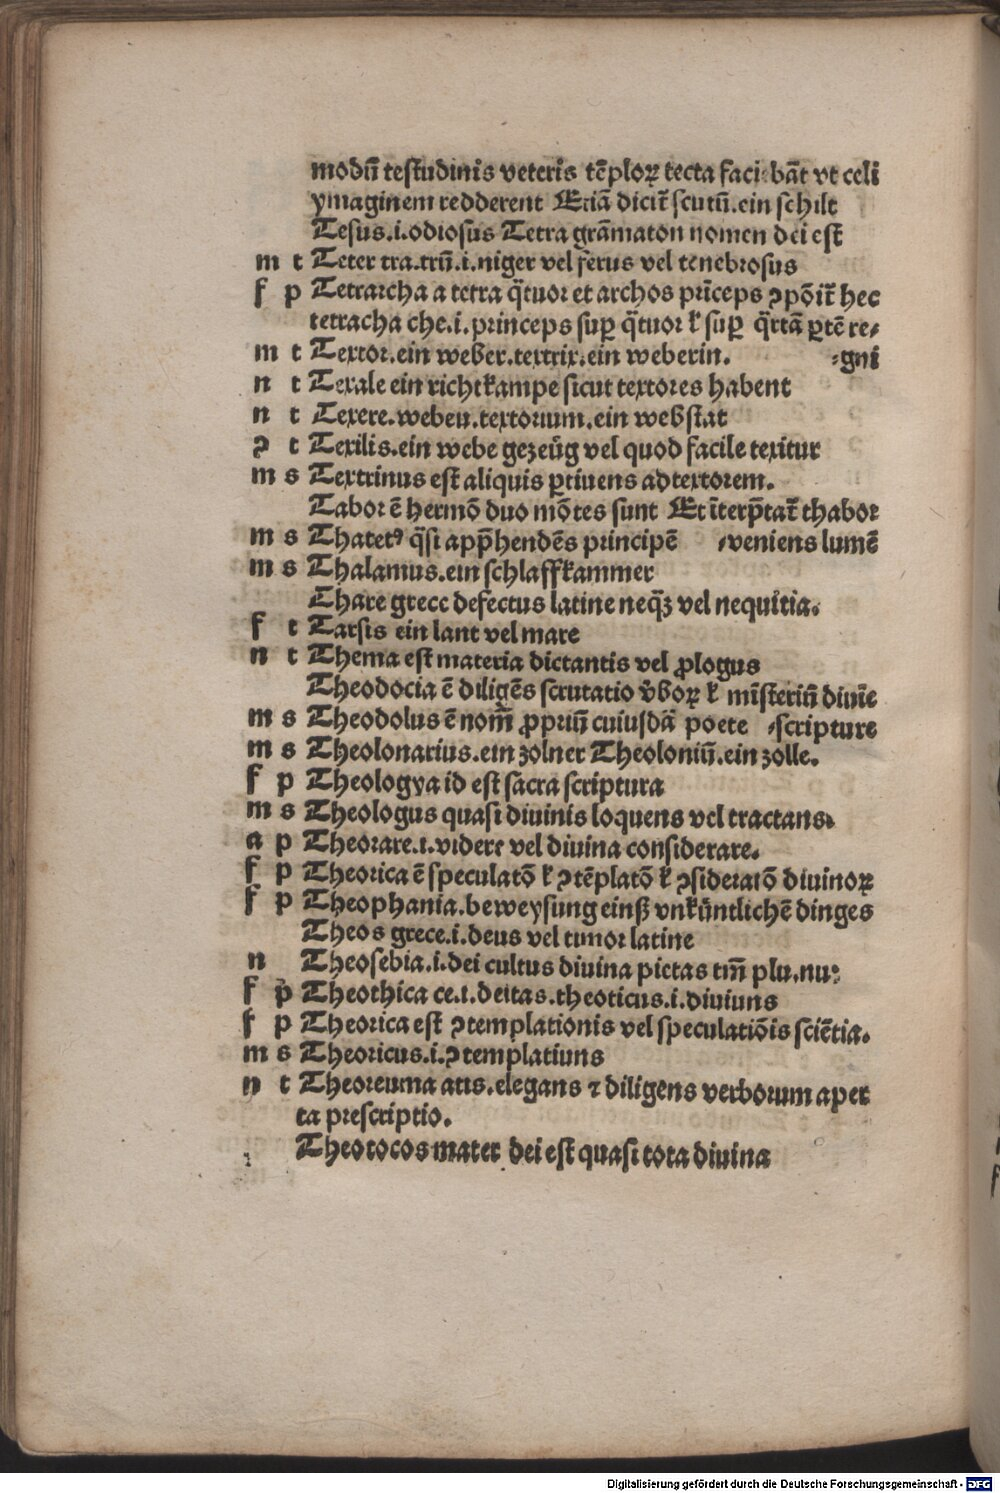 modū testudinis veteris tēploꝝ tecta faciebāt vt celi
ymaginem redderent Etiā dicit̄ scutū.ein schilt
Tesus.i.odiosus Tetra grāmaton nomen dei est
m t Teter tra.trū.i.niger vel ferus vel tenebrosus
f p Tetrarcha a tetra q̄tuor et archos prīceps ꝯpōit̄ hec
tetracha che.i.princeps suꝑ q̄tuor ł suꝑ q̄rtā ꝑtē re⸗
m t Textor.ein weber.textrix.ein weberin. ⸗gni
n t Texale ein richtkampe sicut textores habent
n t Texere.weben.textorium.ein webstat
ꝯ t Texilis.ein webe gezeüg vel quod facile texitur
m s Textrinus est aliquis ꝑtinens ad textorem.
Tabor ē hermō duo mōtes sunt Et īterp̄tat̄ thabor
m s Thatetꝰ q̄si app̄hendēs principē ⸗veniens lumē
m s Thalamus.ein schlaffkammer
Thare grece defectus latine neq̄ꝫ vel nequitia.
f t Tarsis ein lant vel mare
n t Thema est materia dictantis vel ꝓlogus
Theodocia ē diligēs scrutatio v̄boꝝ ł mīsteriū diuīe
m s Theodolus ē nom̄ ꝓpriū cuiusdā poete ⸗scripture
m s Theolonarius.ein zolner Theoloniū.ein zolle.
f p Theologya id est sacra scriptura
m s Theologus quasi diuinis loquens vel tractans.
a p Theorare.i.videre vel diuina considerare.
f p Theorica ē speculatō ł ꝯtēplatō ł ꝯsideratō diuinoꝝ
f p Theophania.beweysung einß vnküntlichē dinges
Theos grece.i.deus vel timor latine
n Theosebia.i.dei cultus diuina pietas tm̄ plu.nu:
f p Theothica ce.i.deitas.theoticus.i.diuiuns
f p Theorica est ꝯtemplationis vel speculatiōis sciētia.
m s Theoricus.i.ꝯtemplatiuns
n t Theoreuma atis.elegans ⁊ diligens verborum aper
ta prescriptio.
Theotocos mater dei est quasi tota diuina
Digitalisierung gefördert durch die Deutsche Forschungsgemeinschaft - DFG